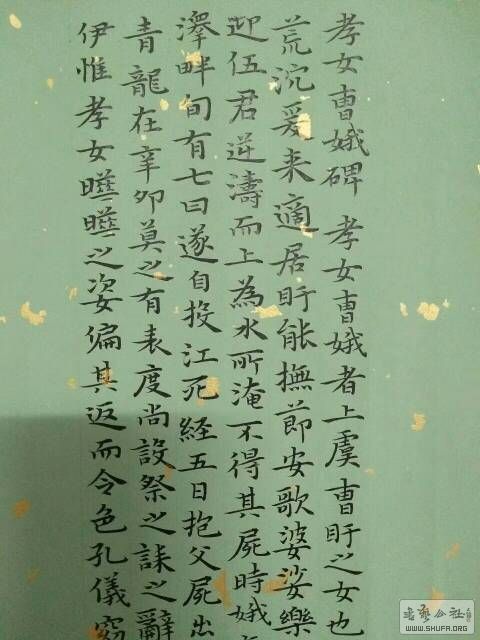 孝女曹娥碑 孝女曹娥者上虞曹盱之女也
荒沉爰来適居盱能撫節安歌婆娑樂
迎伍君逆濤而上為水所淹不得其屍時娥
澤畔旬有七日遂自投江死経五日抱父屍出
青龍在辛卯莫之有表度尚設祭之誄之辭
伊惟孝女曣曣之姿偏其返而令色孔儀窈
WWW.SHUFA.ORG